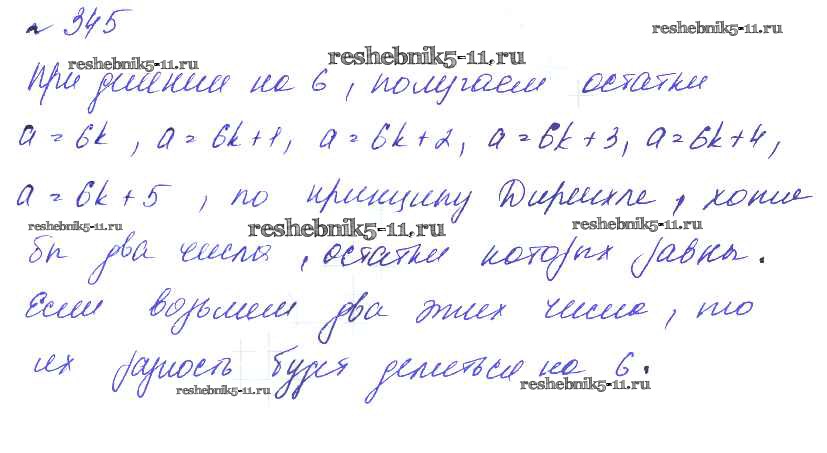 № 345
При делении на 6, получаем остатки
a = 6k, a = 6k+1, a = 6k+2, a = 6k+3, a = 6k+4,
a = 6k+5, по принципу Дирихле, хотя
бы два числа, остатки которых равны.
Если возьмем два этих числа, то
их разность будет делиться на 6.
reshebnik5-11.ru
reshebnik5-11.ru
reshebnik5-11.ru
reshebnik5-11.ru
reshebnik5-11.ru
reshebnik5-11.ru
reshebnik5-11.ru
reshebnik5-11.ru